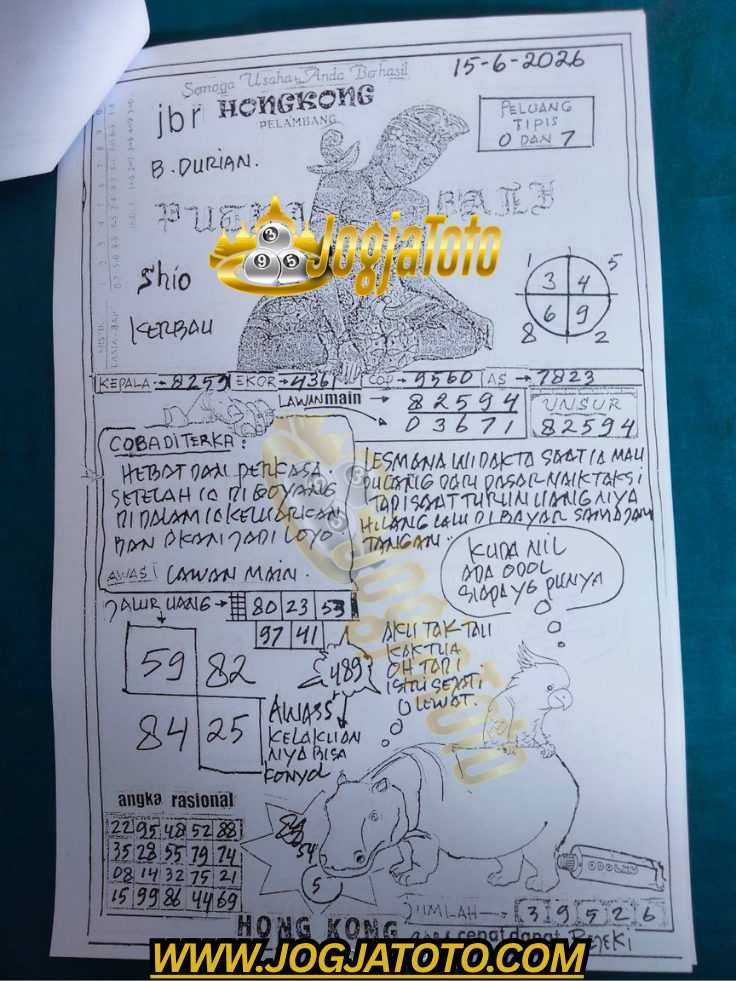 Semoga Usaha Anda Berhasil
15-6-2026
jbr HONGKONG
PELAMBANG
PELUANG
TIPIS
0 DAN 7
B. DURIAN.
JogjaToto
3
9 5
Shio
KERBAU
1 5
3 4
6 9
8 2
KEPALA → 8259 EKOR → 4361 COP → 9560 AS → 7823
LAWAN main → 82594
03671
UNSUR
82594
COBA DITERKA:
HEBAT DAN PERKASA.
SETELAH IA DI GOYANG
DI DALAM IA KELUARKAN
DAN AKAN JADI LOYO
AWAS! LAWAN MAIN.
LESMANA WIDAKTA SAAT IA MAU
PULANG DARI PASAR NAIK TAKSI
TAPI SAAT TURUN UANG NIYA
HILANG LALU DI BAYAR SAMA JAM
TANGAN.
KUDA NIL
ADA ODOL
SIAPA YG PUNYA
JALUR UANG → 80 23 53
97 41
59 82
84 25
489
AWASS
KELAKUAN
NIYA BISA
KONYOL
AKU TAK TAU
KAKTUA
OH TAPI
ISTRI SEJATI
LEWAT.
angka rasional
22 95 48 52 88
35 28 55 79 74
08 14 32 75 21
15 99 86 44 69
54
5
JUMLAH → 3 9 5 2 6
HONG KONG
cepat dapat REJEKI
WWW.JOGJATOTO.COM